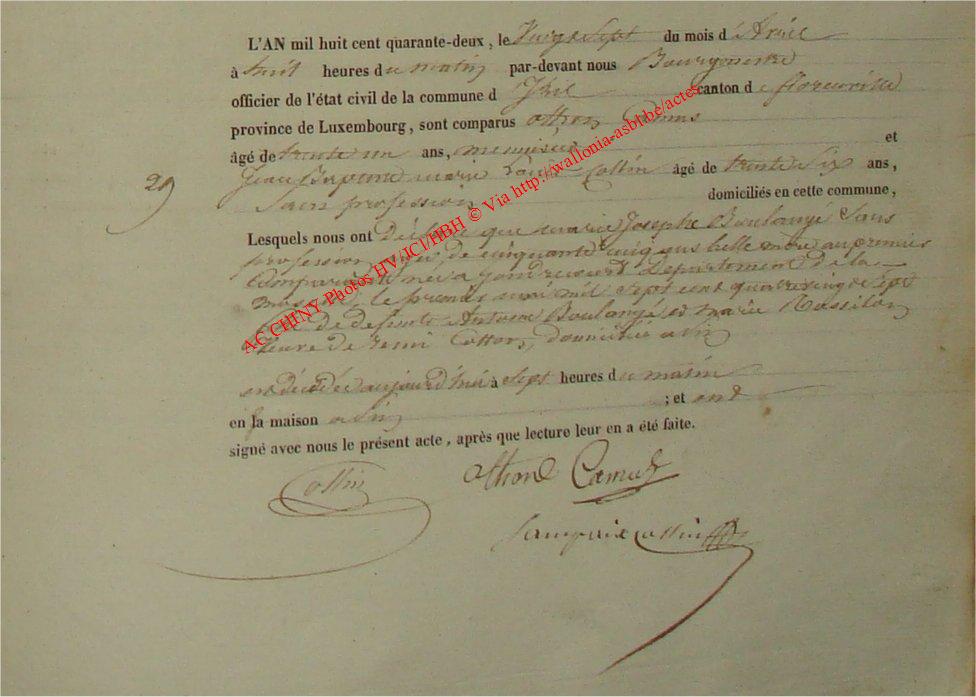 L'AN mil huit cent quarante-deux, le Vingt Sept du mois d'Avril
à huit heures du matin par-devant nous Bourgmestre
officier de l'état civil de la commune d canton de florenville
province de Luxembourg, sont comparus othon Camus
âgé de trente un ans, menuisier et
29
Jean Baptiste marie Louis Collin âgé de trente Six ans,
Sans profession domiciliés en cette commune,
Lesquels nous ont Déclaré que marie Josephe Boulangé Sans
profession agée de cinquante cinq ans belle mère au premier
Comparant née a Département de la
le premier mai mil Sept cent quatre vingt Sept
fille de defunts Antoine Boulangé et marie
Veuve de remi domicilié
est décédée aujourd'hui à Sept heures du matin
en la maison ; et ont
signé avec nous le présent acte, après que lecture leur en a été faite.
Collin othon Camus
Collin
AC CHINY Photos HV/JCI/HBH © Via http://wallonia-asbl.be/actes